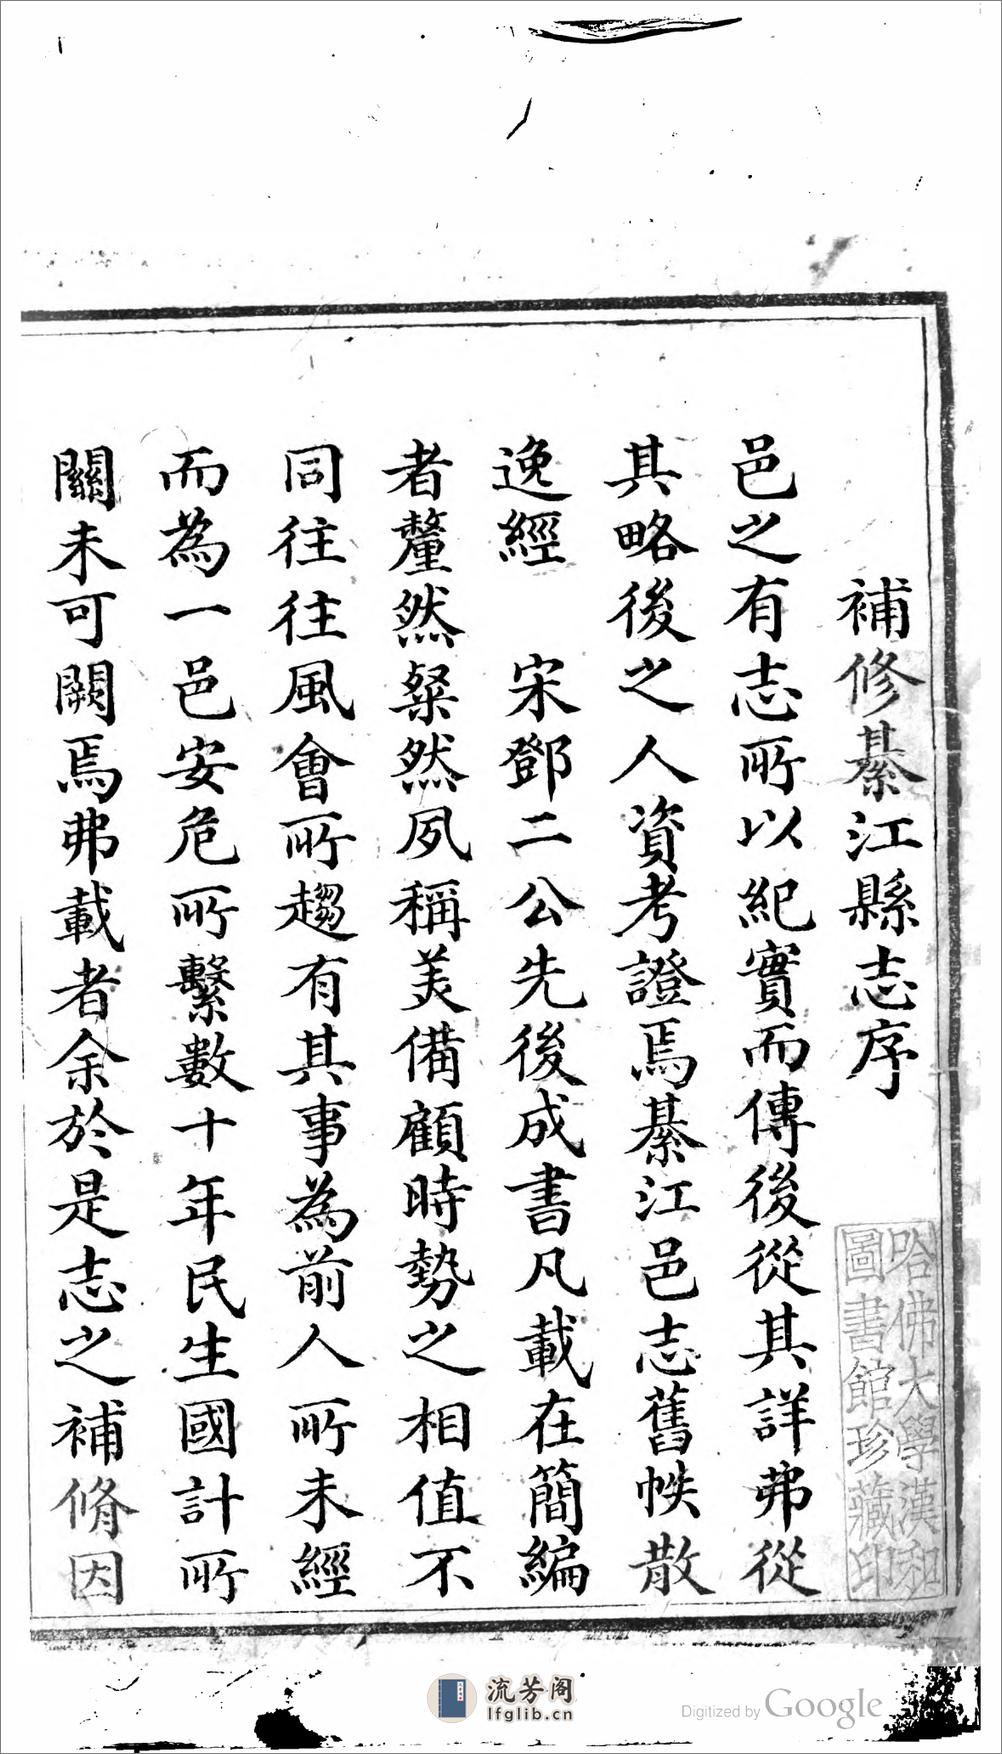 補修綦江縣志序
邑之有志所以紀實而傳後從其詳弗從
其略後之人資考證焉綦江邑志舊帙散
逸經　宋鄧二公先後成書凡載在簡編
者釐然粲然夙稱美備顧時勢之相值不
同往往風會所趨有其事為前人所未經
而為一邑安危所繫數十年民生國計所
關未可闕焉弗載者余於是志之補脩因
哈佛大學漢和
圖書館珍藏印
流芳阁
lfglib.cn
Digitized by Google